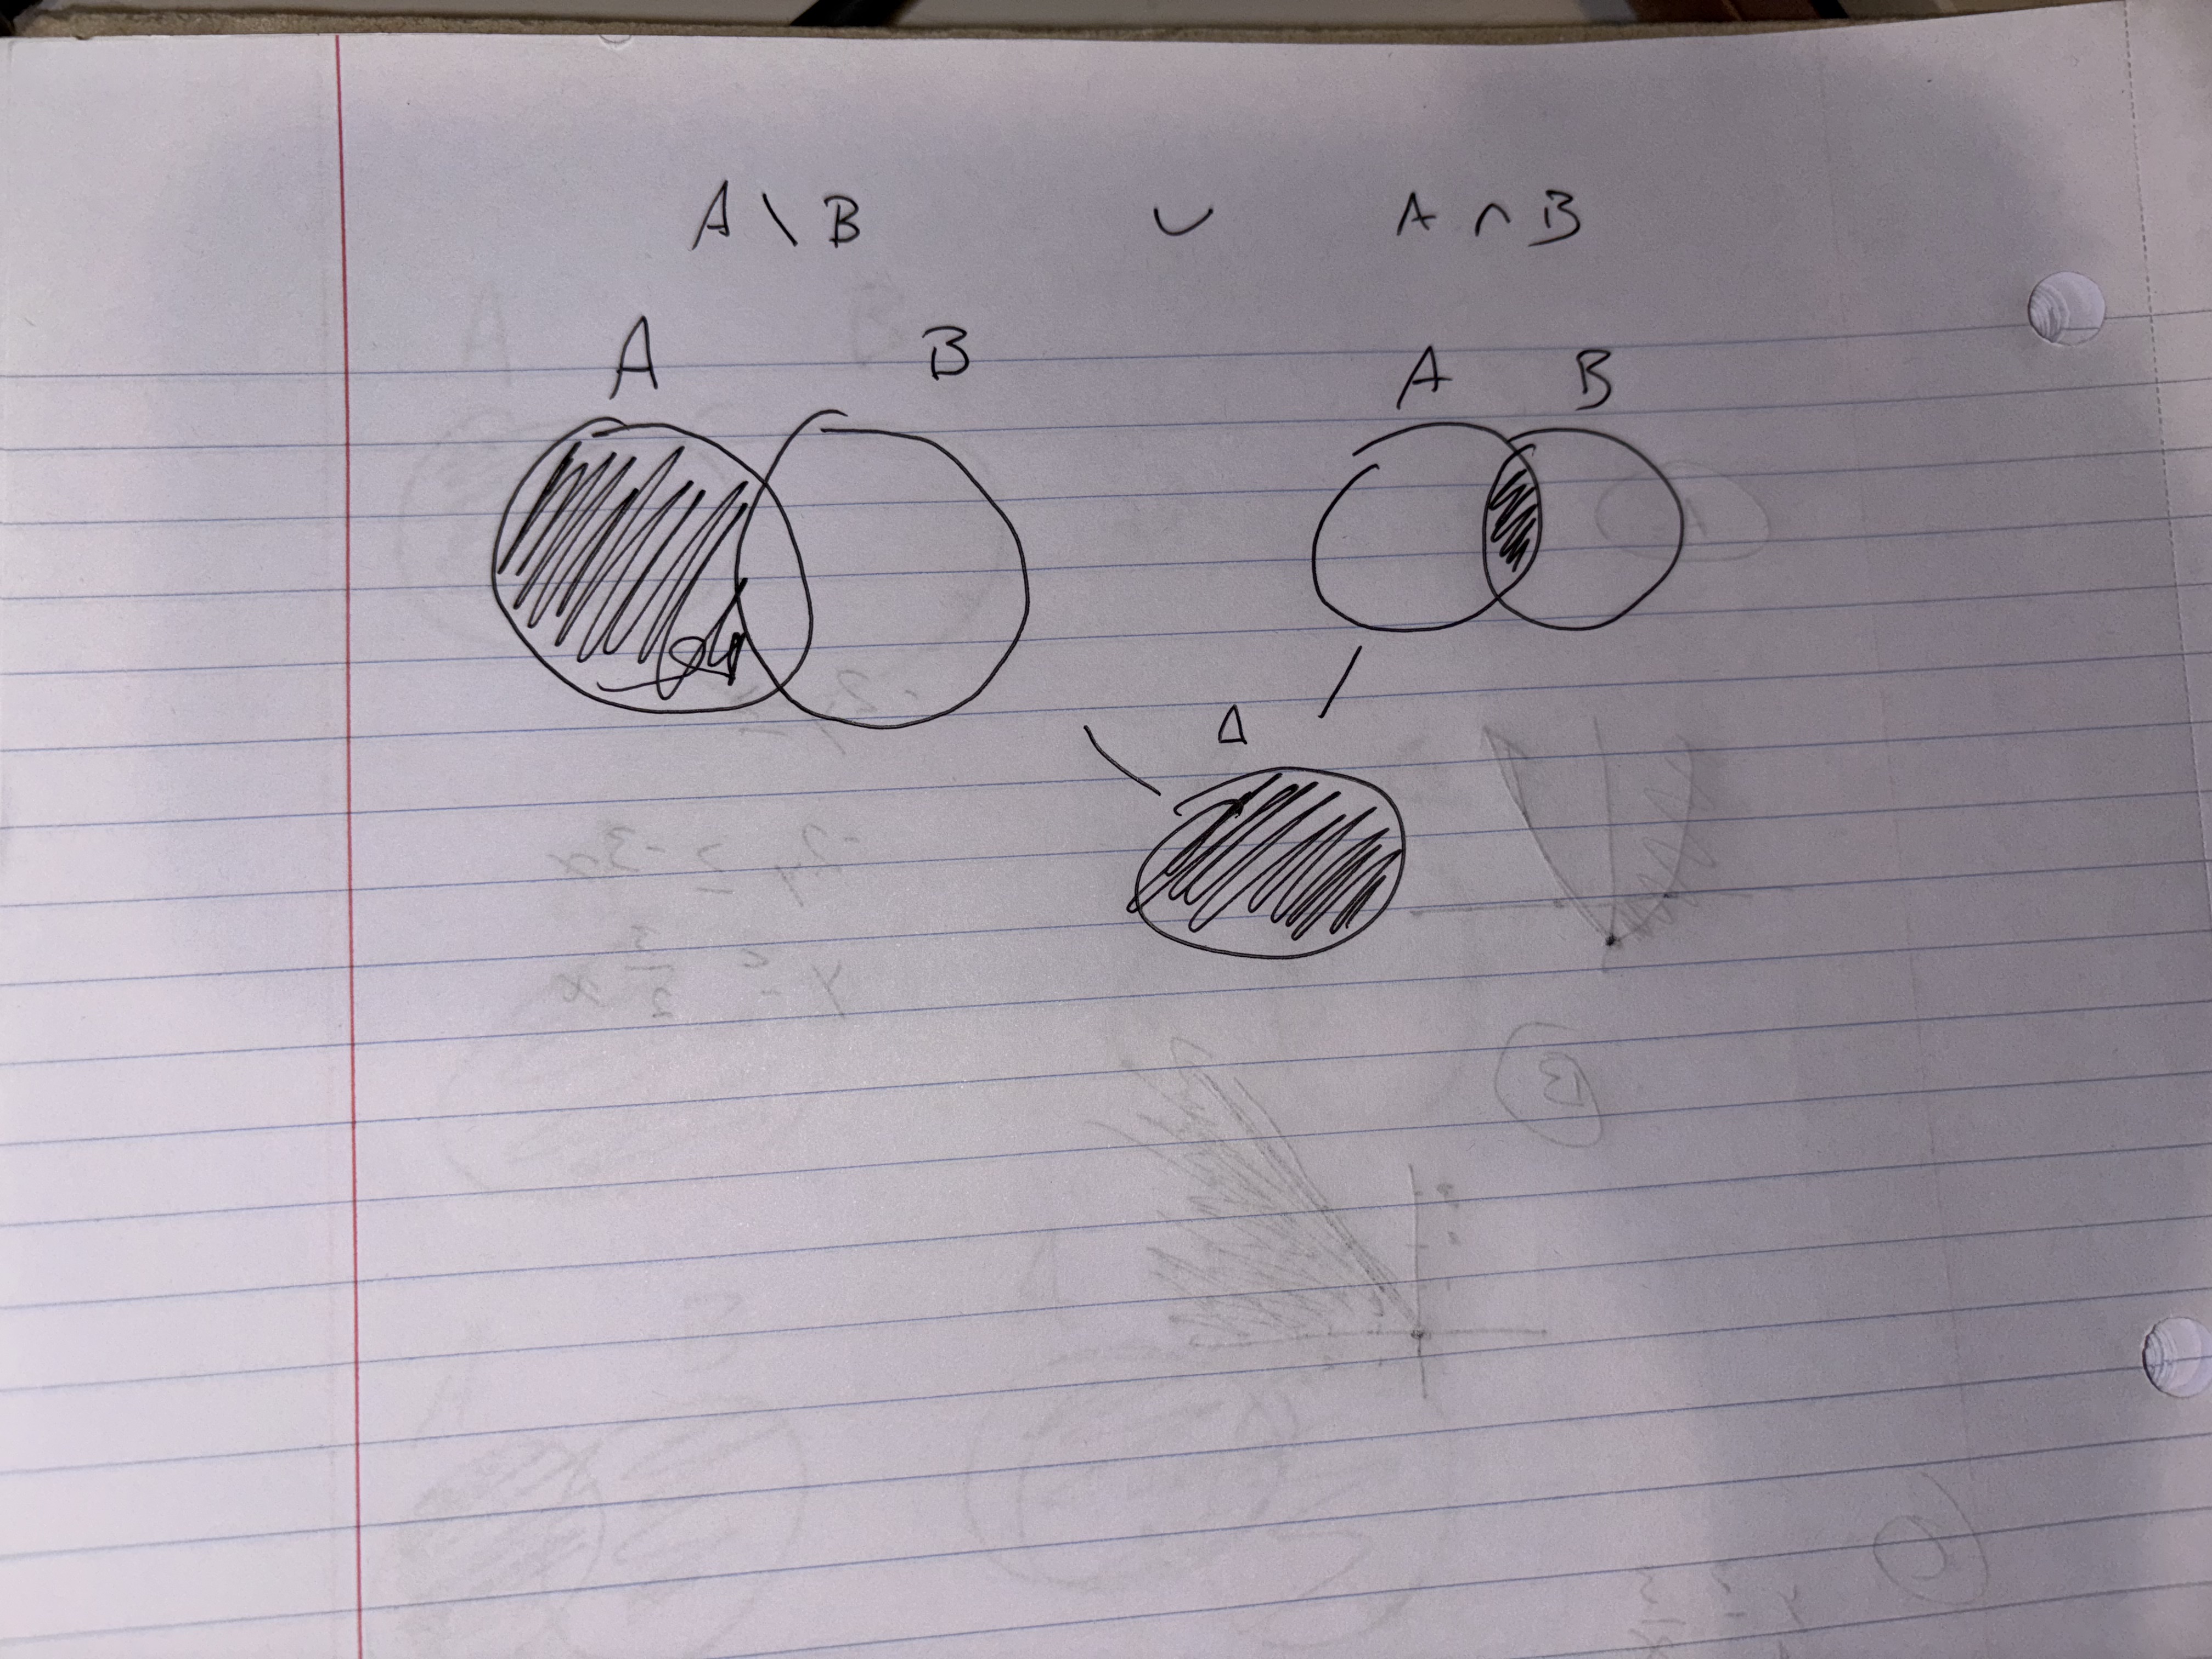 A \ B ∪ A ∩ B
A B A B
A